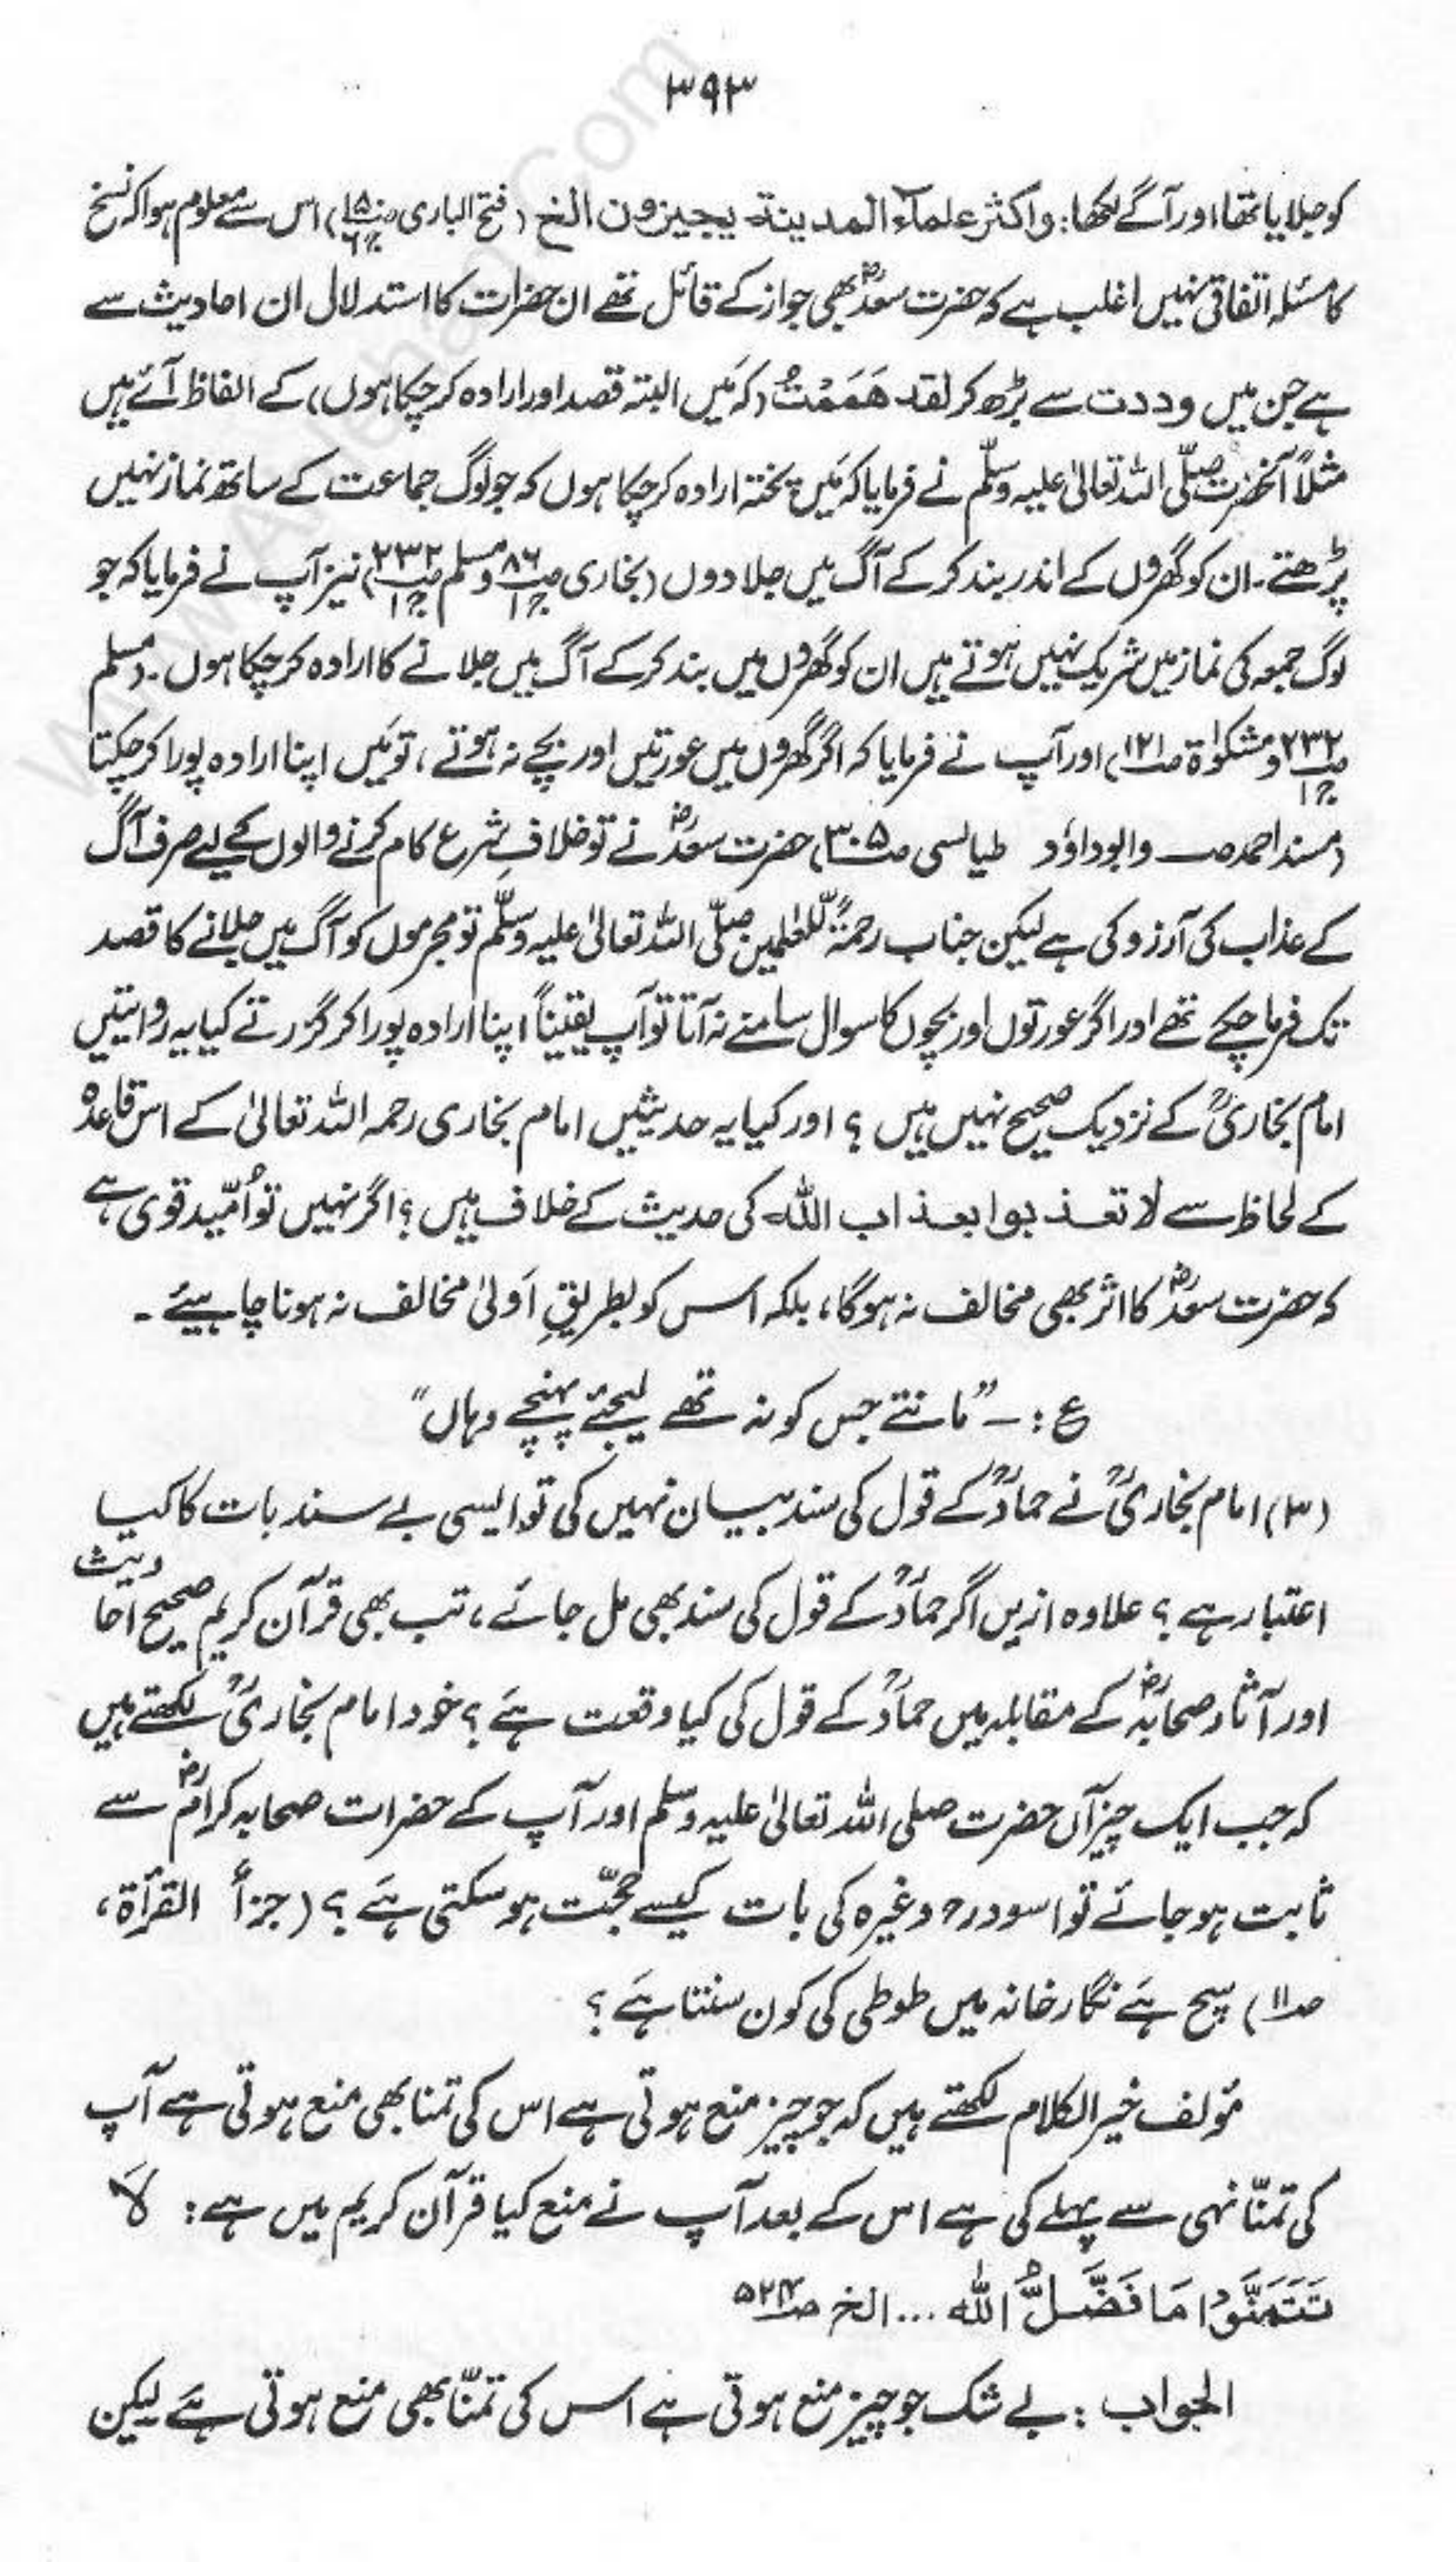 ۳۹۳
کو جلایا تھا اور آگے لکھا: واکثر علماء المدینۃ یجیزون الخ (فتح الباری ج۶) اس سے معلوم ہوا کہ نسخ
کا مسئلہ اتفاقی نہیں اغلب ہے کہ حضرت سعدؓ بھی جواز کے قائل تھے ان حضرات کا استدلال ان احادیث سے
ہے جن میں وددت سے بڑھ کر لقد هَمَمْتُ (کہ مَیں البتہ قصد اور ارادہ کر چکا ہوں) کے الفاظ آئے ہیں
مثلاً آنحضرت صلّی اللہ تعالیٰ علیہ وسلّم نے فرمایا کہ مَیں پختہ ارادہ کر چکا ہوں کہ جو لوگ جماعت کے ساتھ نماز نہیں
پڑھتے۔ ان کو گھروں کے اندر بند کر کے آگ میں جلا دوں (بخاری ص۸۶ ج۱ و مسلم ص۲۳۲ ج۱) نیز آپ نے فرمایا کہ جو
لوگ جمعہ کی نماز میں شریک نہیں ہوتے ہیں ان کو گھروں میں بند کر کے آگ میں جلانے کا ارادہ کر چکا ہوں۔ (مسلم
ص۲۳۲ ج۱ و مشکوٰۃ ص۱۲۱) اور آپ نے فرمایا کہ اگر گھروں میں عورتیں اور بچے نہ ہوتے، تو مَیں اپنا ارادہ پورا کر چکتا
(مسند احمد صـ وابوداؤد طیالسی ص۳۰۵) حضرت سعدؓ نے تو خلافِ شرع کام کرنے والوں کے لیے صرف آگ
کے عذاب کی آرزو کی ہے لیکن جناب رحمۃٌ للعٰلمین صلّی اللہ تعالیٰ علیہ وسلّم تو مجرموں کو آگ میں جلانے کا قصد
تک فرما چکے تھے اور اگر عورتوں اور بچوں کا سوال سامنے نہ آتا تو آپ یقیناً اپنا ارادہ پورا کر گزرتے کیا یہ روایتیں
امام بخاریؒ کے نزدیک صحیح نہیں ہیں ؟ اور کیا یہ حدیثیں امام بخاری رحمہ اللہ تعالیٰ کے اس قاعدہ
کے لحاظ سے لا تعذبوا بعذاب اللہ کی حدیث کے خلاف ہیں ؟ اگر نہیں تو اُمّید قوی ہے
کہ حضرت سعدؓ کا اثر بھی مخالف نہ ہوگا، بلکہ اس کو بطریقِ اَولیٰ مخالف نہ ہونا چاہیئے۔
ع :۔ ”مانتے جس کو نہ تھے لیجئے پہنچے وہاں“
(۳) امام بخاریؒ نے حمادؒ کے قول کی سند بیان نہیں کی تو ایسی بے سند بات کا کیا
اعتبار ہے ؟ علاوہ ازیں اگر حمادؒ کے قول کی سند بھی مل جائے، تب بھی قرآن کریم صحیح احادیث
اور آثارِ صحابہؓ کے مقابلہ میں حمادؒ کے قول کی کیا وقعت ہے ؟ خود امام بخاریؒ لکھتے ہیں
کہ جب ایک چیز آں حضرت صلی اللہ تعالیٰ علیہ وسلم اور آپ کے حضرات صحابہ کرامؓ سے
ثابت ہو جائے تو اسودرح وغیرہ کی بات کیسے حجّت ہو سکتی ہے ؟ (جزأ القرأۃ،
ص۱۱) سچ ہے نگارخانہ میں طوطی کی کون سنتا ہے ؟
مؤلف خیر الکلام لکھتے ہیں کہ جو چیز منع ہوتی ہے اس کی تمنا بھی منع ہوتی ہے آپ
کی تمنّا نہی سے پہلے کی ہے اس کے بعد آپ نے منع کیا قرآن کریم میں ہے: لَا
تَتَمَنَّوْا مَا فَضَّلَ اللّٰهُ ... الخ ص۵۲۴
الجواب : بے شک جو چیز منع ہوتی ہے اس کی تمنّا بھی منع ہوتی ہے لیکن